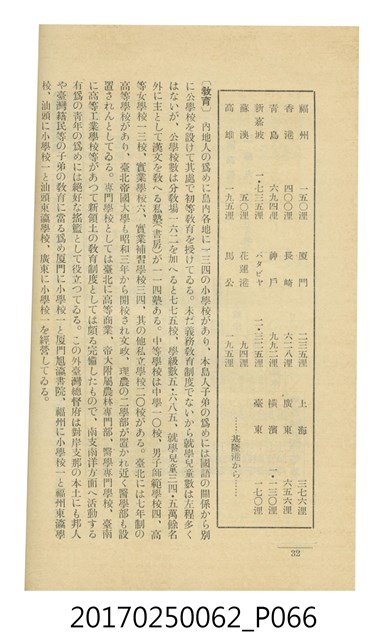 福州 一五〇浬 廈門 二三五浬 上海 三七六浬
香港 四〇〇浬 長崎 六二八浬 廣東 六五六浬
青島 六九四浬 神戶 九九二浬 橫濱 一・二三〇浬
新嘉坡 一・七三五浬 バタビヤ 二・三二五浬 臺東 一七〇浬
蘇澳 五〇浬 花蓮港 九五浬
高雄 一九五浬 馬公 一九五浬 ……基隆港から……
〔敎育〕 內地人の爲めに島內各地に一三四の小學校があり、本島人子弟の爲めには國語の關係から別
に公學校を設けて其處で初等敎育を授けてゐる。未だ義務敎育制度でないから就學兒童數は左程多く
はないが、公學校數は分敎場一六二を加へると七七五校、學級數五・六八五、就學兒童二四・五萬餘名
外に主として漢文を敎へる私塾(書房)が一一四塾ある。中等學校は中學一〇校、男子師範學校四、高
等女學校一三校、實業學校六、實業補習學校三四、其の他私立學校二〇校がある。臺北には七年制の
高等學校があり、臺北帝國大學も昭和三年から開校され文政、理農の二學部が置かれ近く醫學部も設
置されんとしてゐる。專門學校としては臺北に高等商業、帝大附屬農林專門部、醫學專門學校、臺南
に高等工業學校等があつて新領土の敎育制度としては頗る完備したもので、南支南洋方面へ活動する
有爲の靑年の爲めには絕好な搖籃として役立つてゐる。この外臺灣總督府は對岸支那の本土にも邦人
や臺灣籍民等の子弟の敎育に當る爲め廈門に小學校一と廈門旭瀛書院、福州に小學校一と福州東瀛學
校、汕頭に小學校一と汕頭東瀛學校、廣東に小學校一を經營してゐる。
32
20170250062_P066